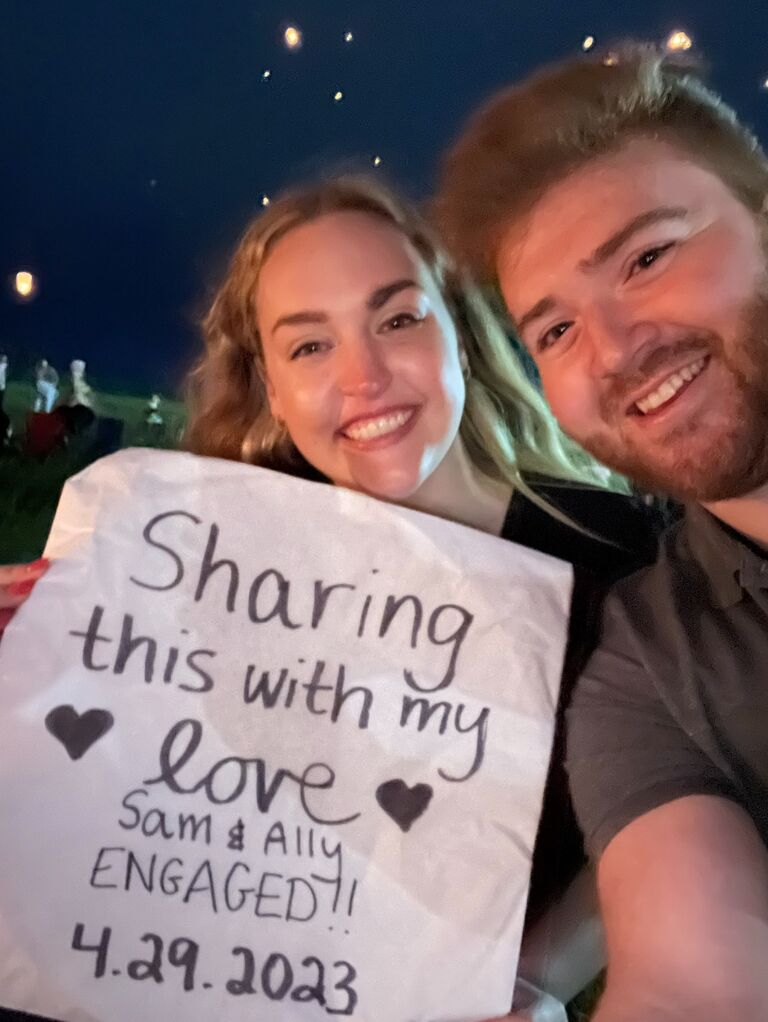 Sharing
this with my
love
Sam & Ally
ENGAGED!!
4.29.2023